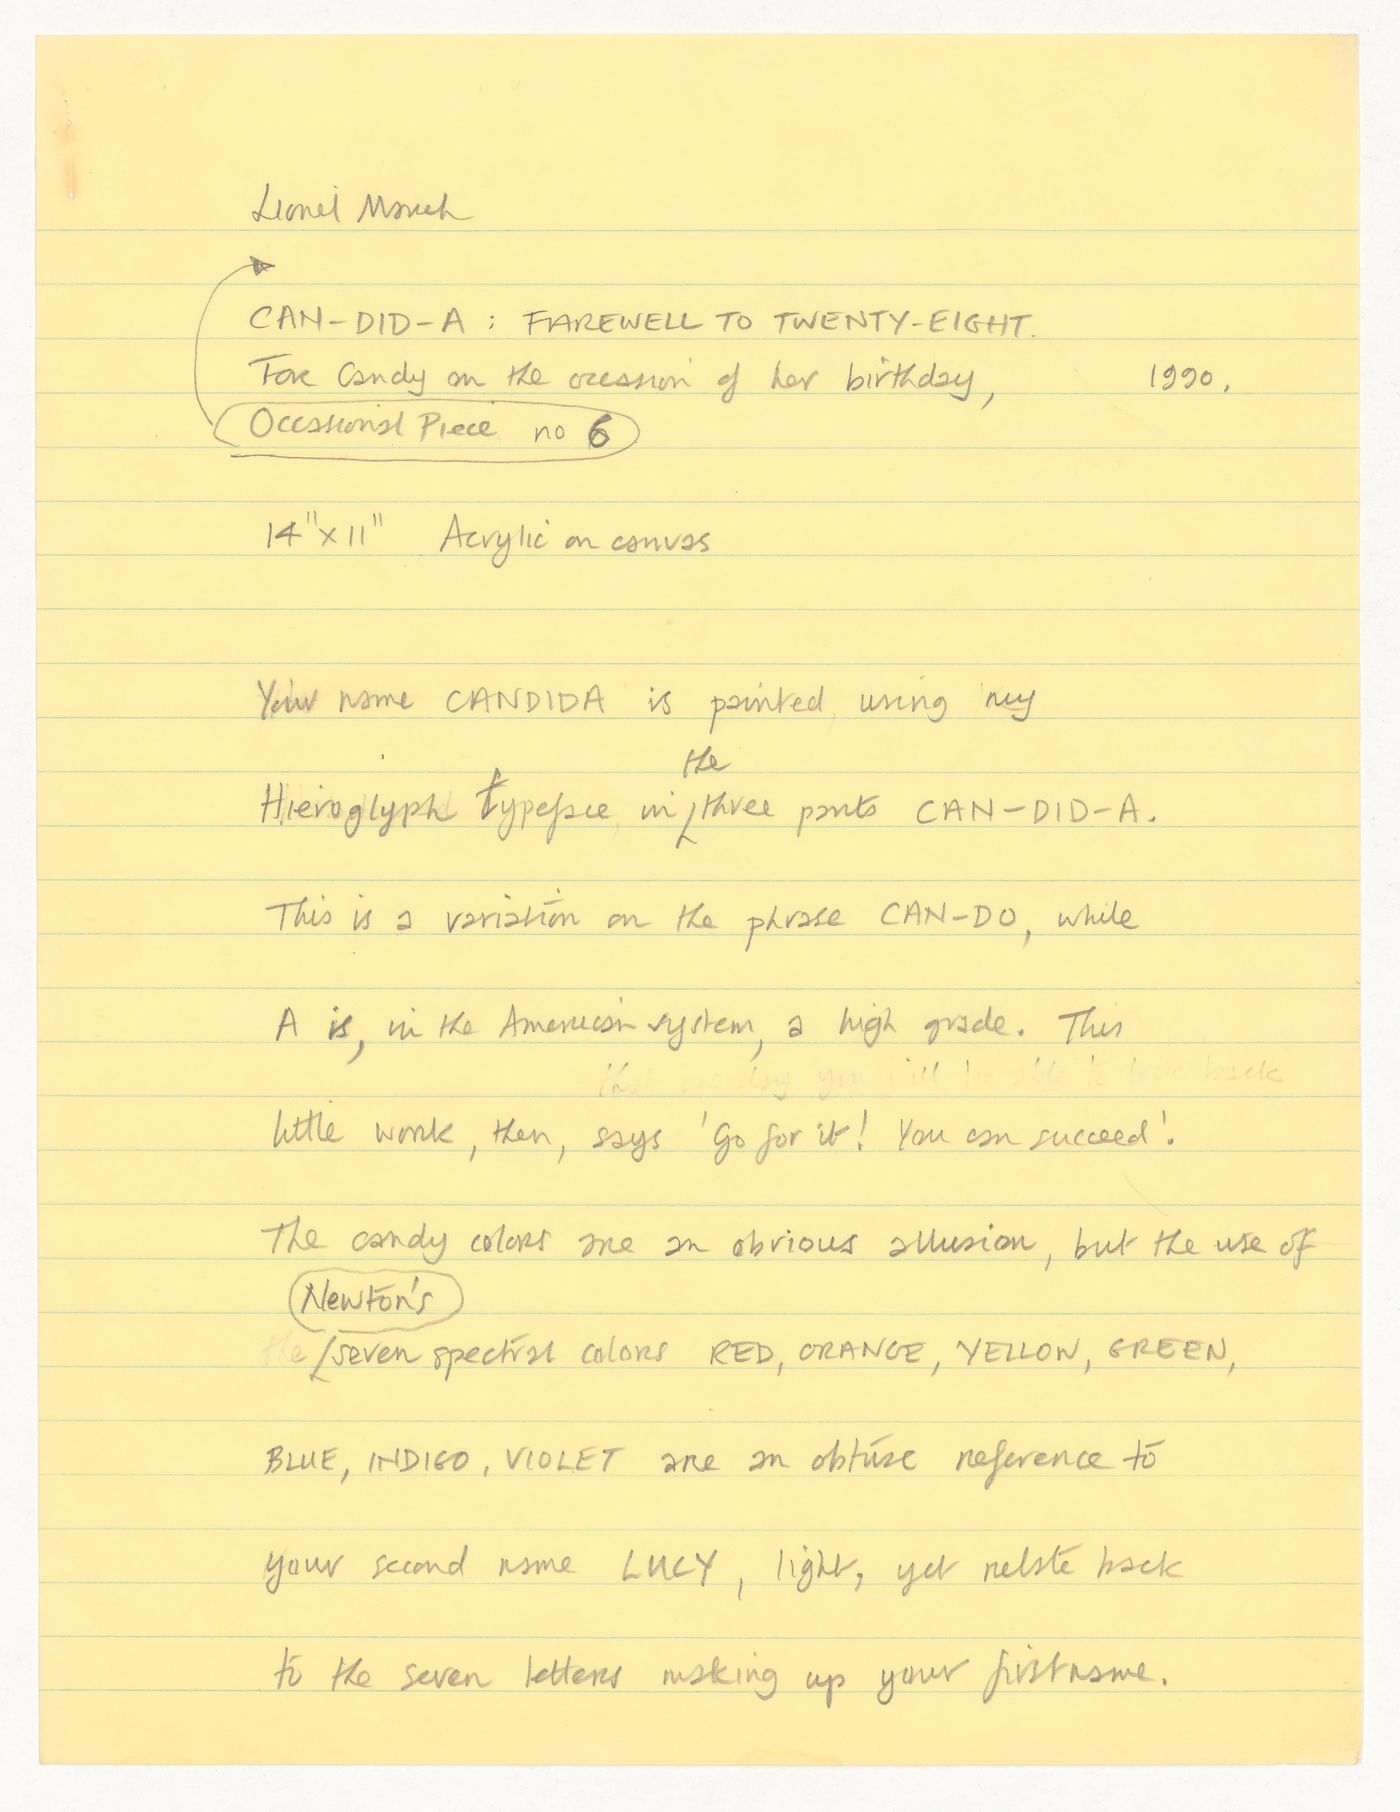 Lionel March
CAN-DID-A : FAREWELL TO TWENTY-EIGHT.
For Candy on the occasion of her birthday, 1990.
Occasional Piece no 6
14"x11" Acrylic on canvas
Your name CANDIDA is painted using my
the
Hieroglyph typeface in three parts CAN-DID-A.
This is a variation on the phrase CAN-DO, while
A is, in the American system, a high grade. This
that one day you will be able to look back
little work, then, says 'Go for it! You can succeed'.
The candy colors are an obvious allusion, but the use of
Newton's
the seven spectral colors RED, ORANGE, YELLOW, GREEN,
BLUE, INDIGO, VIOLET are an obtuse reference to
your second name LUCY, light, yet relate back
to the seven letters making up your first name.